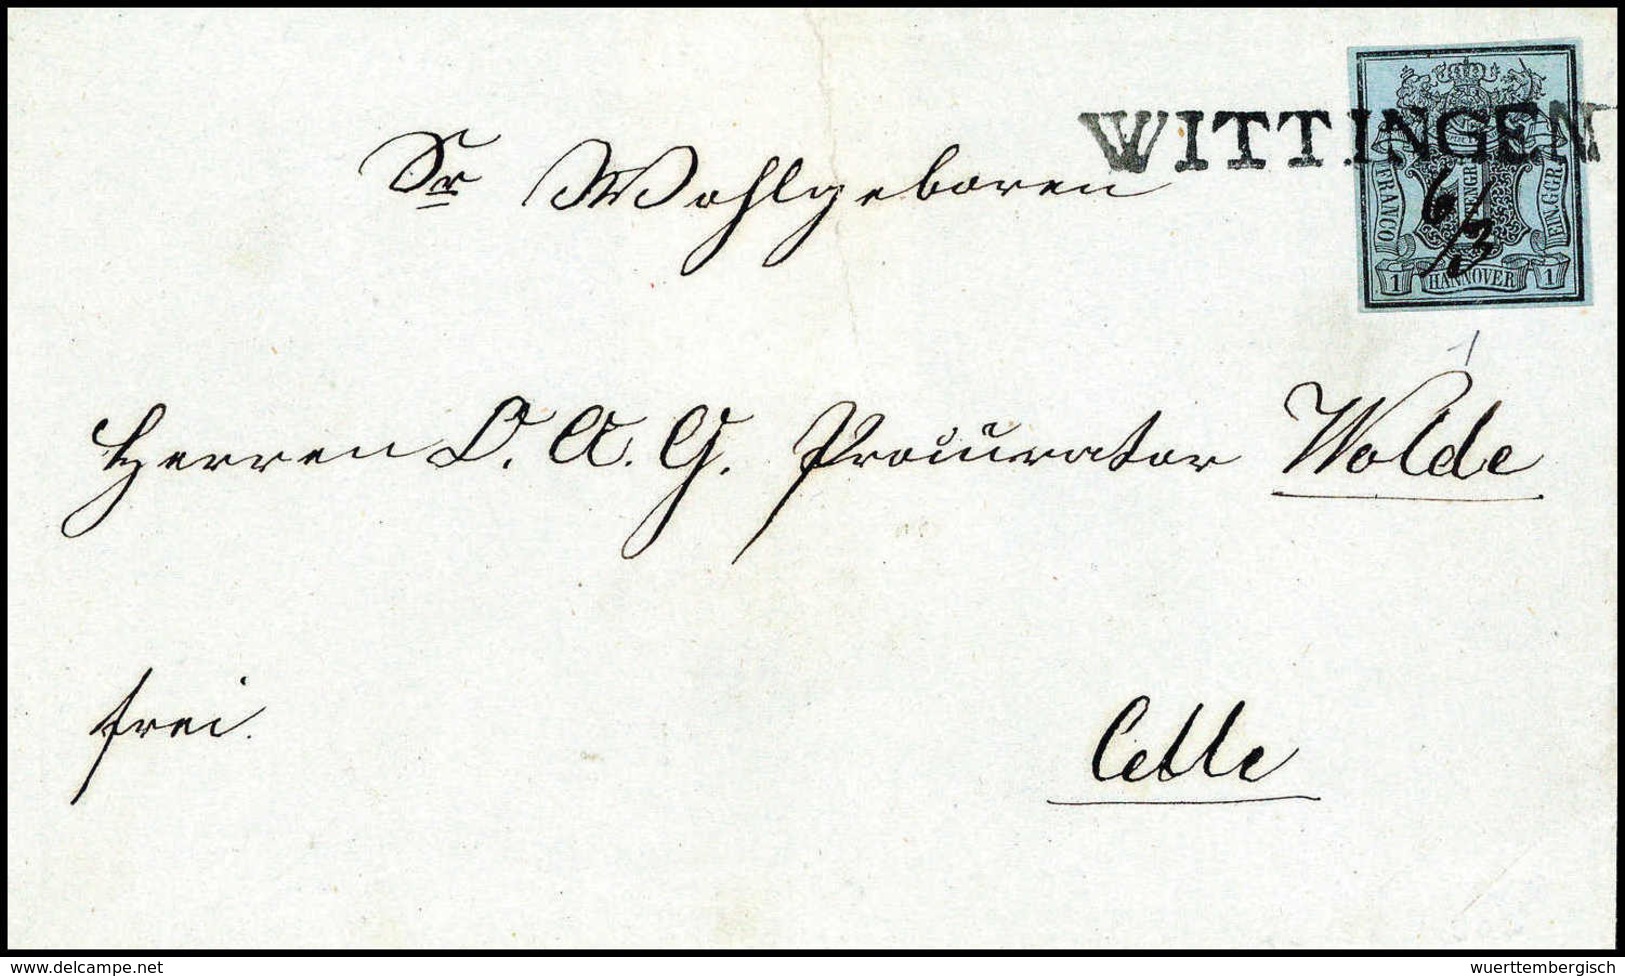 WITTINGEN
FRANCO
EIN GGR
1 HANNOVER 1
6/3
Sr Wohlgeboren
Herren O. A. G. Procurator Wolde
frei.
Celle
© delcampe.net
wuerttembergisch